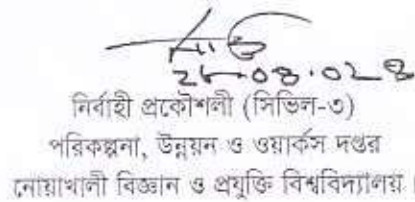 নির্বাহী প্রকৌশলী (সিভিল-৩)
পরিকল্পনা, উন্নয়ন ও ওয়ার্কস দপ্তর
নোয়াখালী বিজ্ঞান ও প্রযুক্তি বিশ্ববিদ্যালয়।